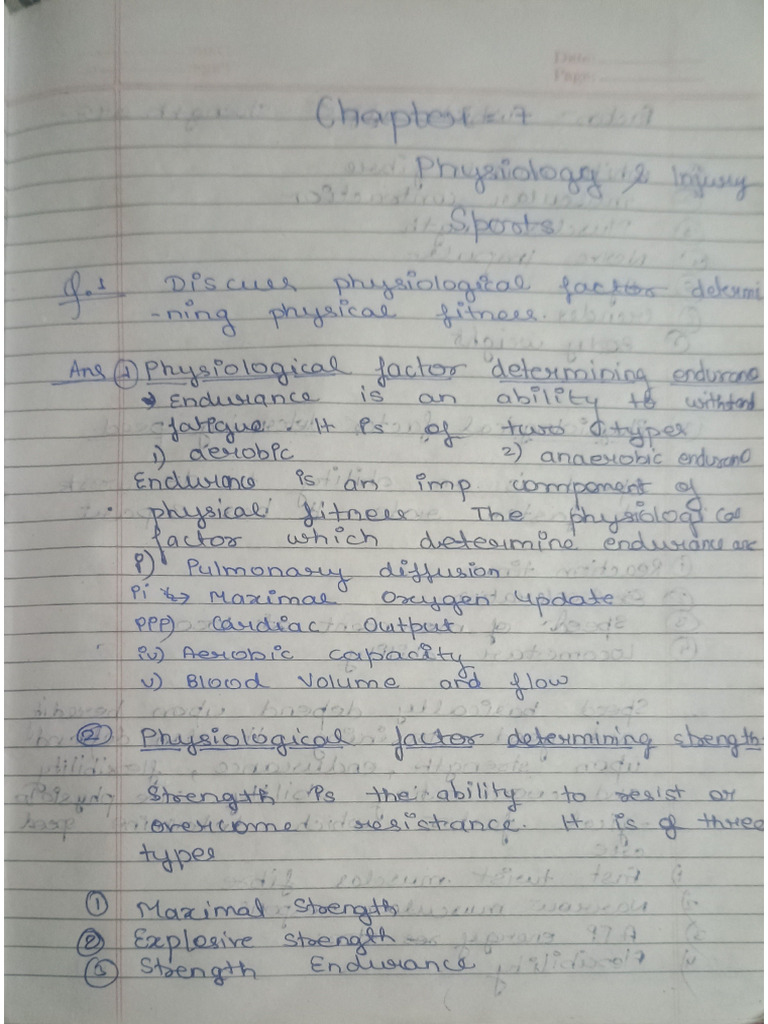 Date:
Page:
Chapter - 7
Physiology & Injury
Sports
Q.1 Discues physiological factor determi
-ning physical fitness.
Ans ① Physiological factor determining endurance
→ Endurance is an ability to withstand
fatigue. It is of two types
1) aerobic 2) anaerobic endurance
Endurance is an imp component of
physical fitness The physiological
factor which determine endurance are
i) Pulmonary diffusion
ii → Maximal Oxygen update
iii) Cardiac Output
iv) Aerobic capacity
v) Blood Volume and flow
② Physiological factor determining strength
Strength is the ability to resist or
overcome resistance. It is of three
types
① Maximal Strength
② Explosive Strength
③ Strength Endurance